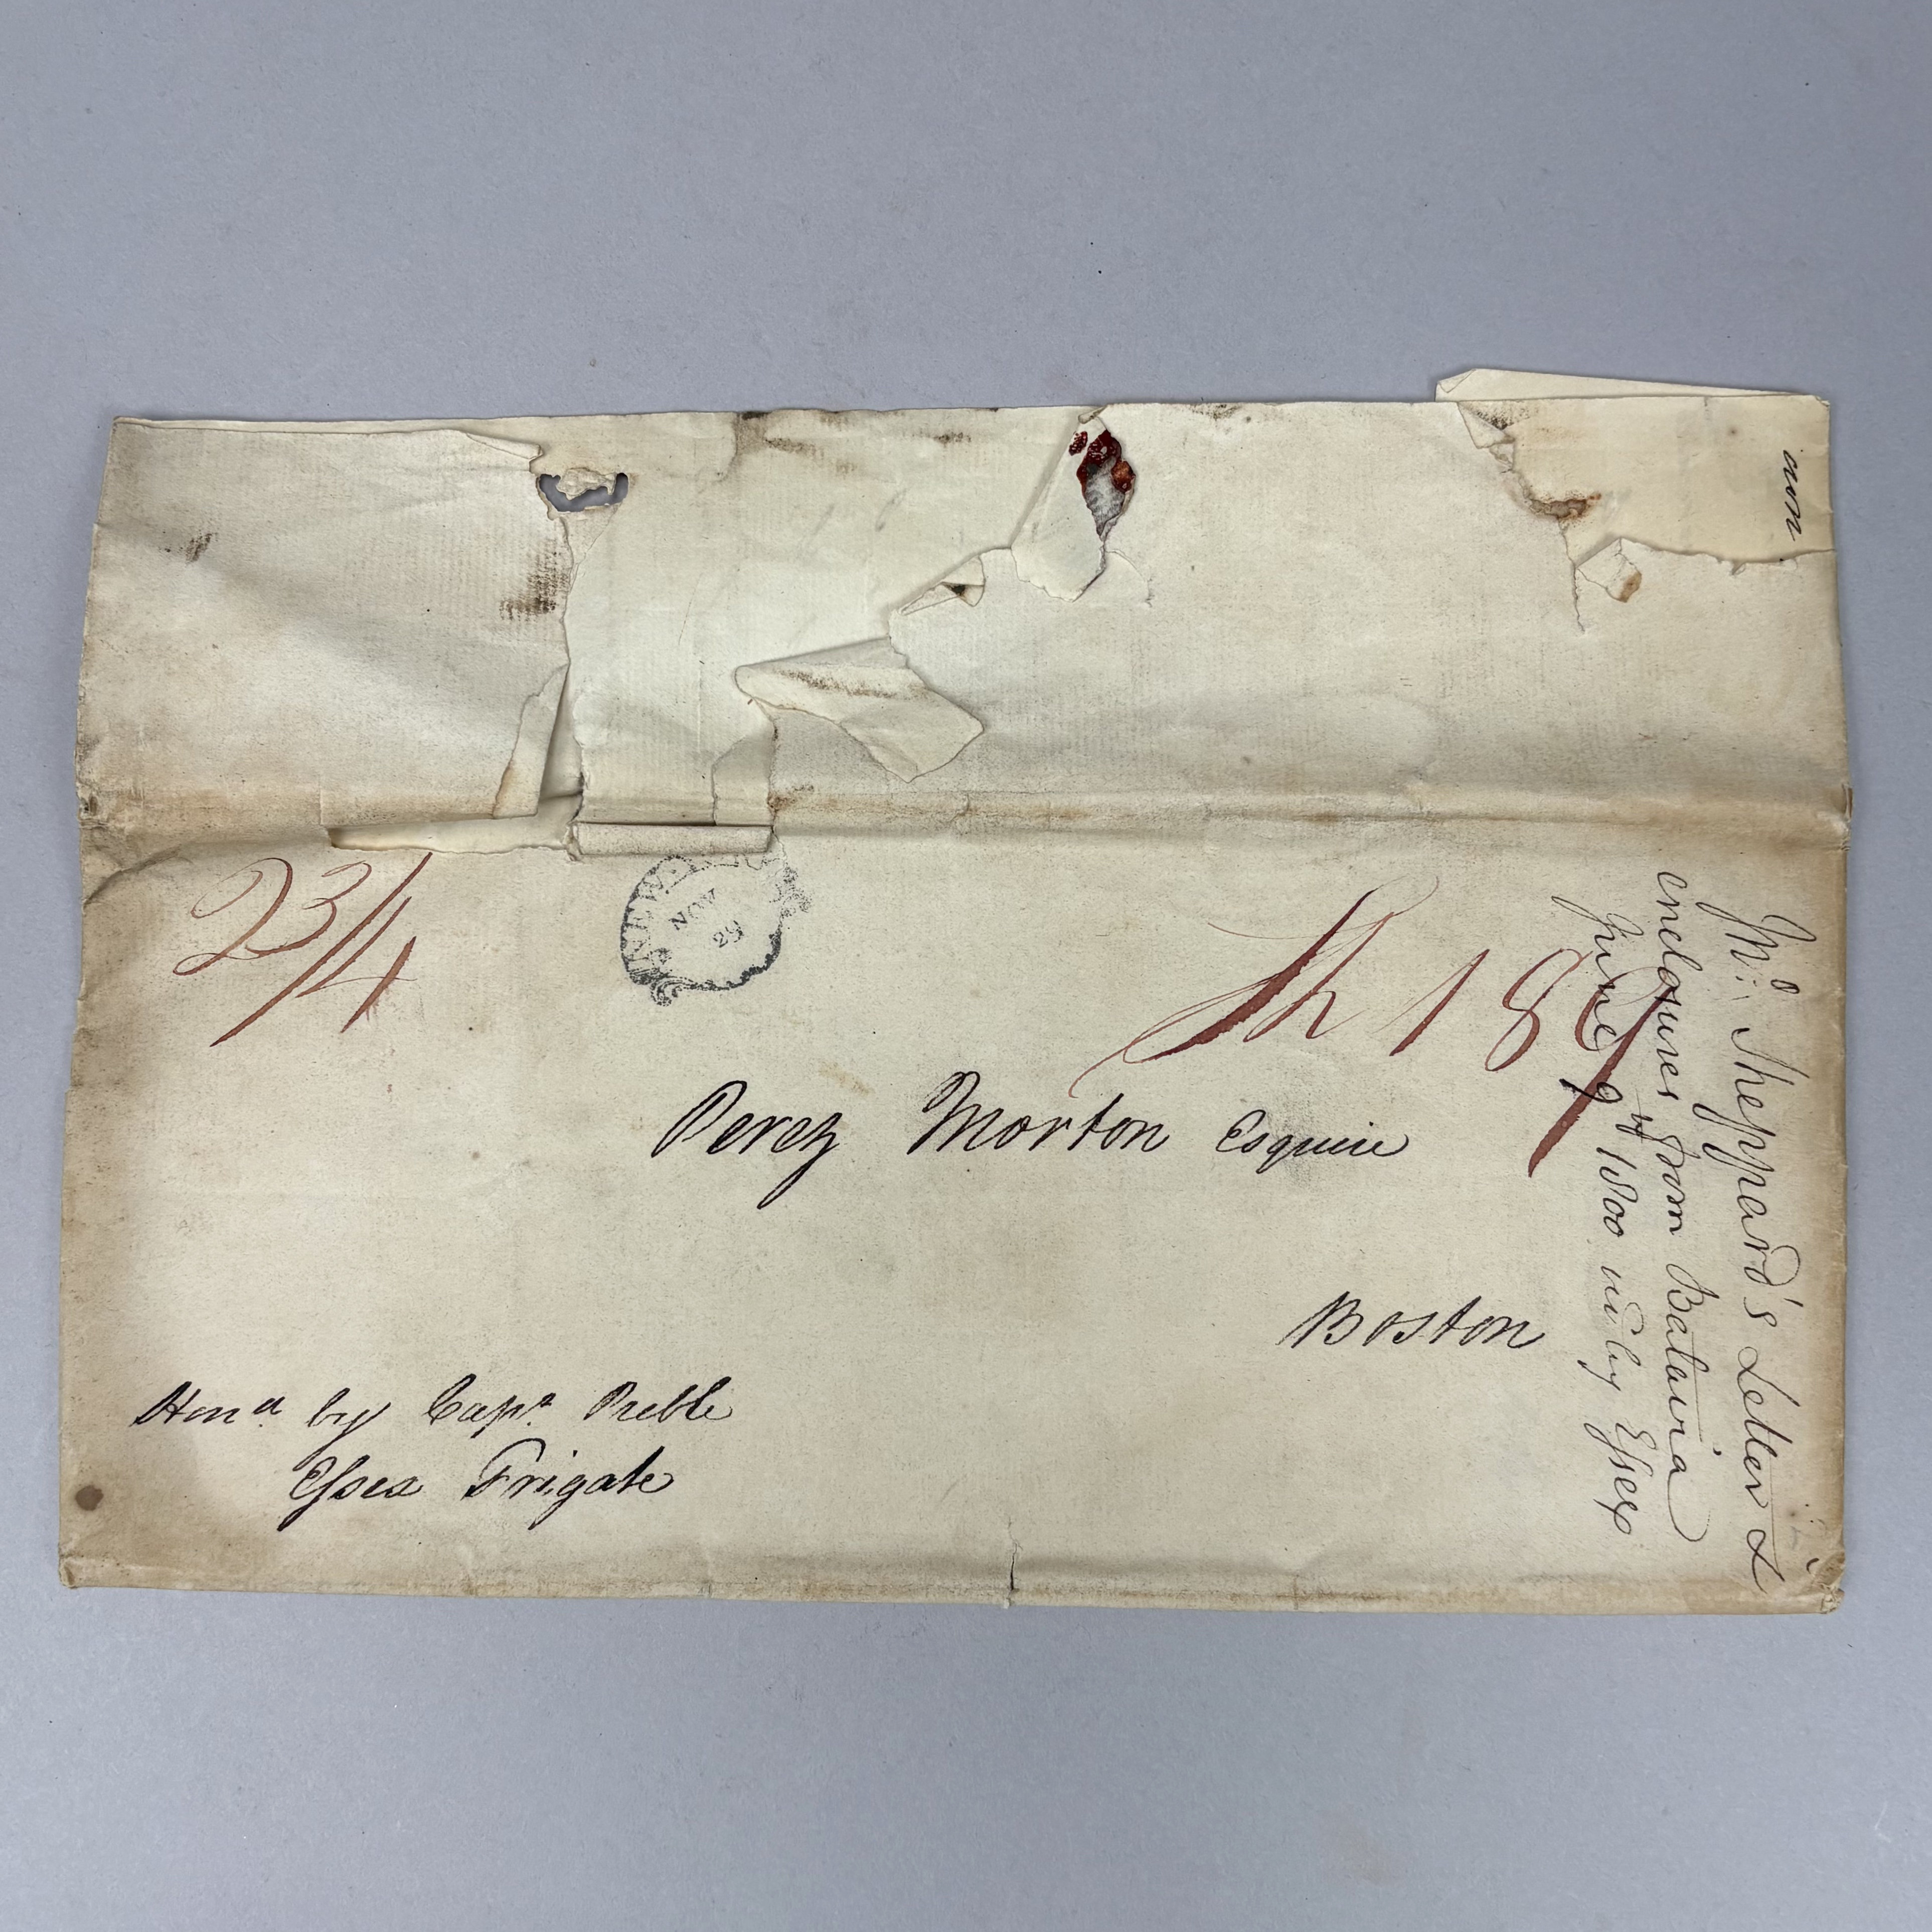 ison
23/4
NEW
NOV
29
Sh 189
Perez Morton Esquire
Boston
Hond by Capt Preble
Essex Frigate
Mr: Sheppard's Letter &
enclosures from Batavia
June 9 1800 by Essex